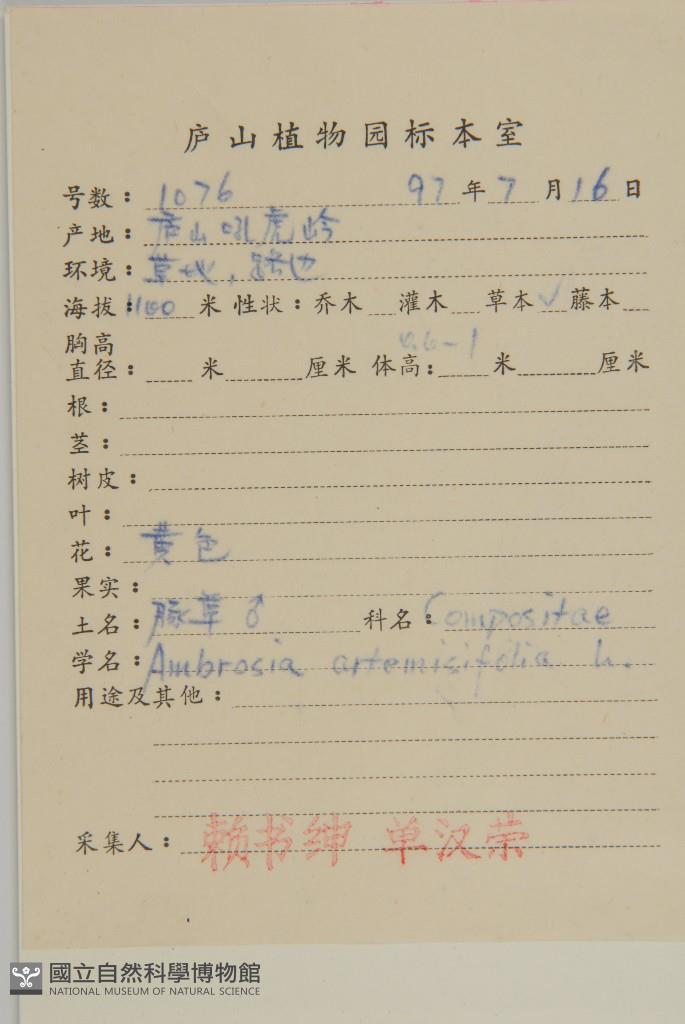 庐山植物园标本室
号数：1076 97年7月16日
产地：庐山吼虎岭
环境：草地，路边
海拔：1100米 性状：乔木 灌木 草本✓ 藤本
胸高
直径： 米 厘米 体高：0.6-1米 厘米
根：
茎：
树皮：
叶：
花：黄色
果实：
土名：豚草♂ 科名：Compositae
学名：Ambrosia artemisifolia L.
用途及其他：
采集人：赖书绅 单汉荣
國立自然科學博物館
NATIONAL MUSEUM OF NATURAL SCIENCE